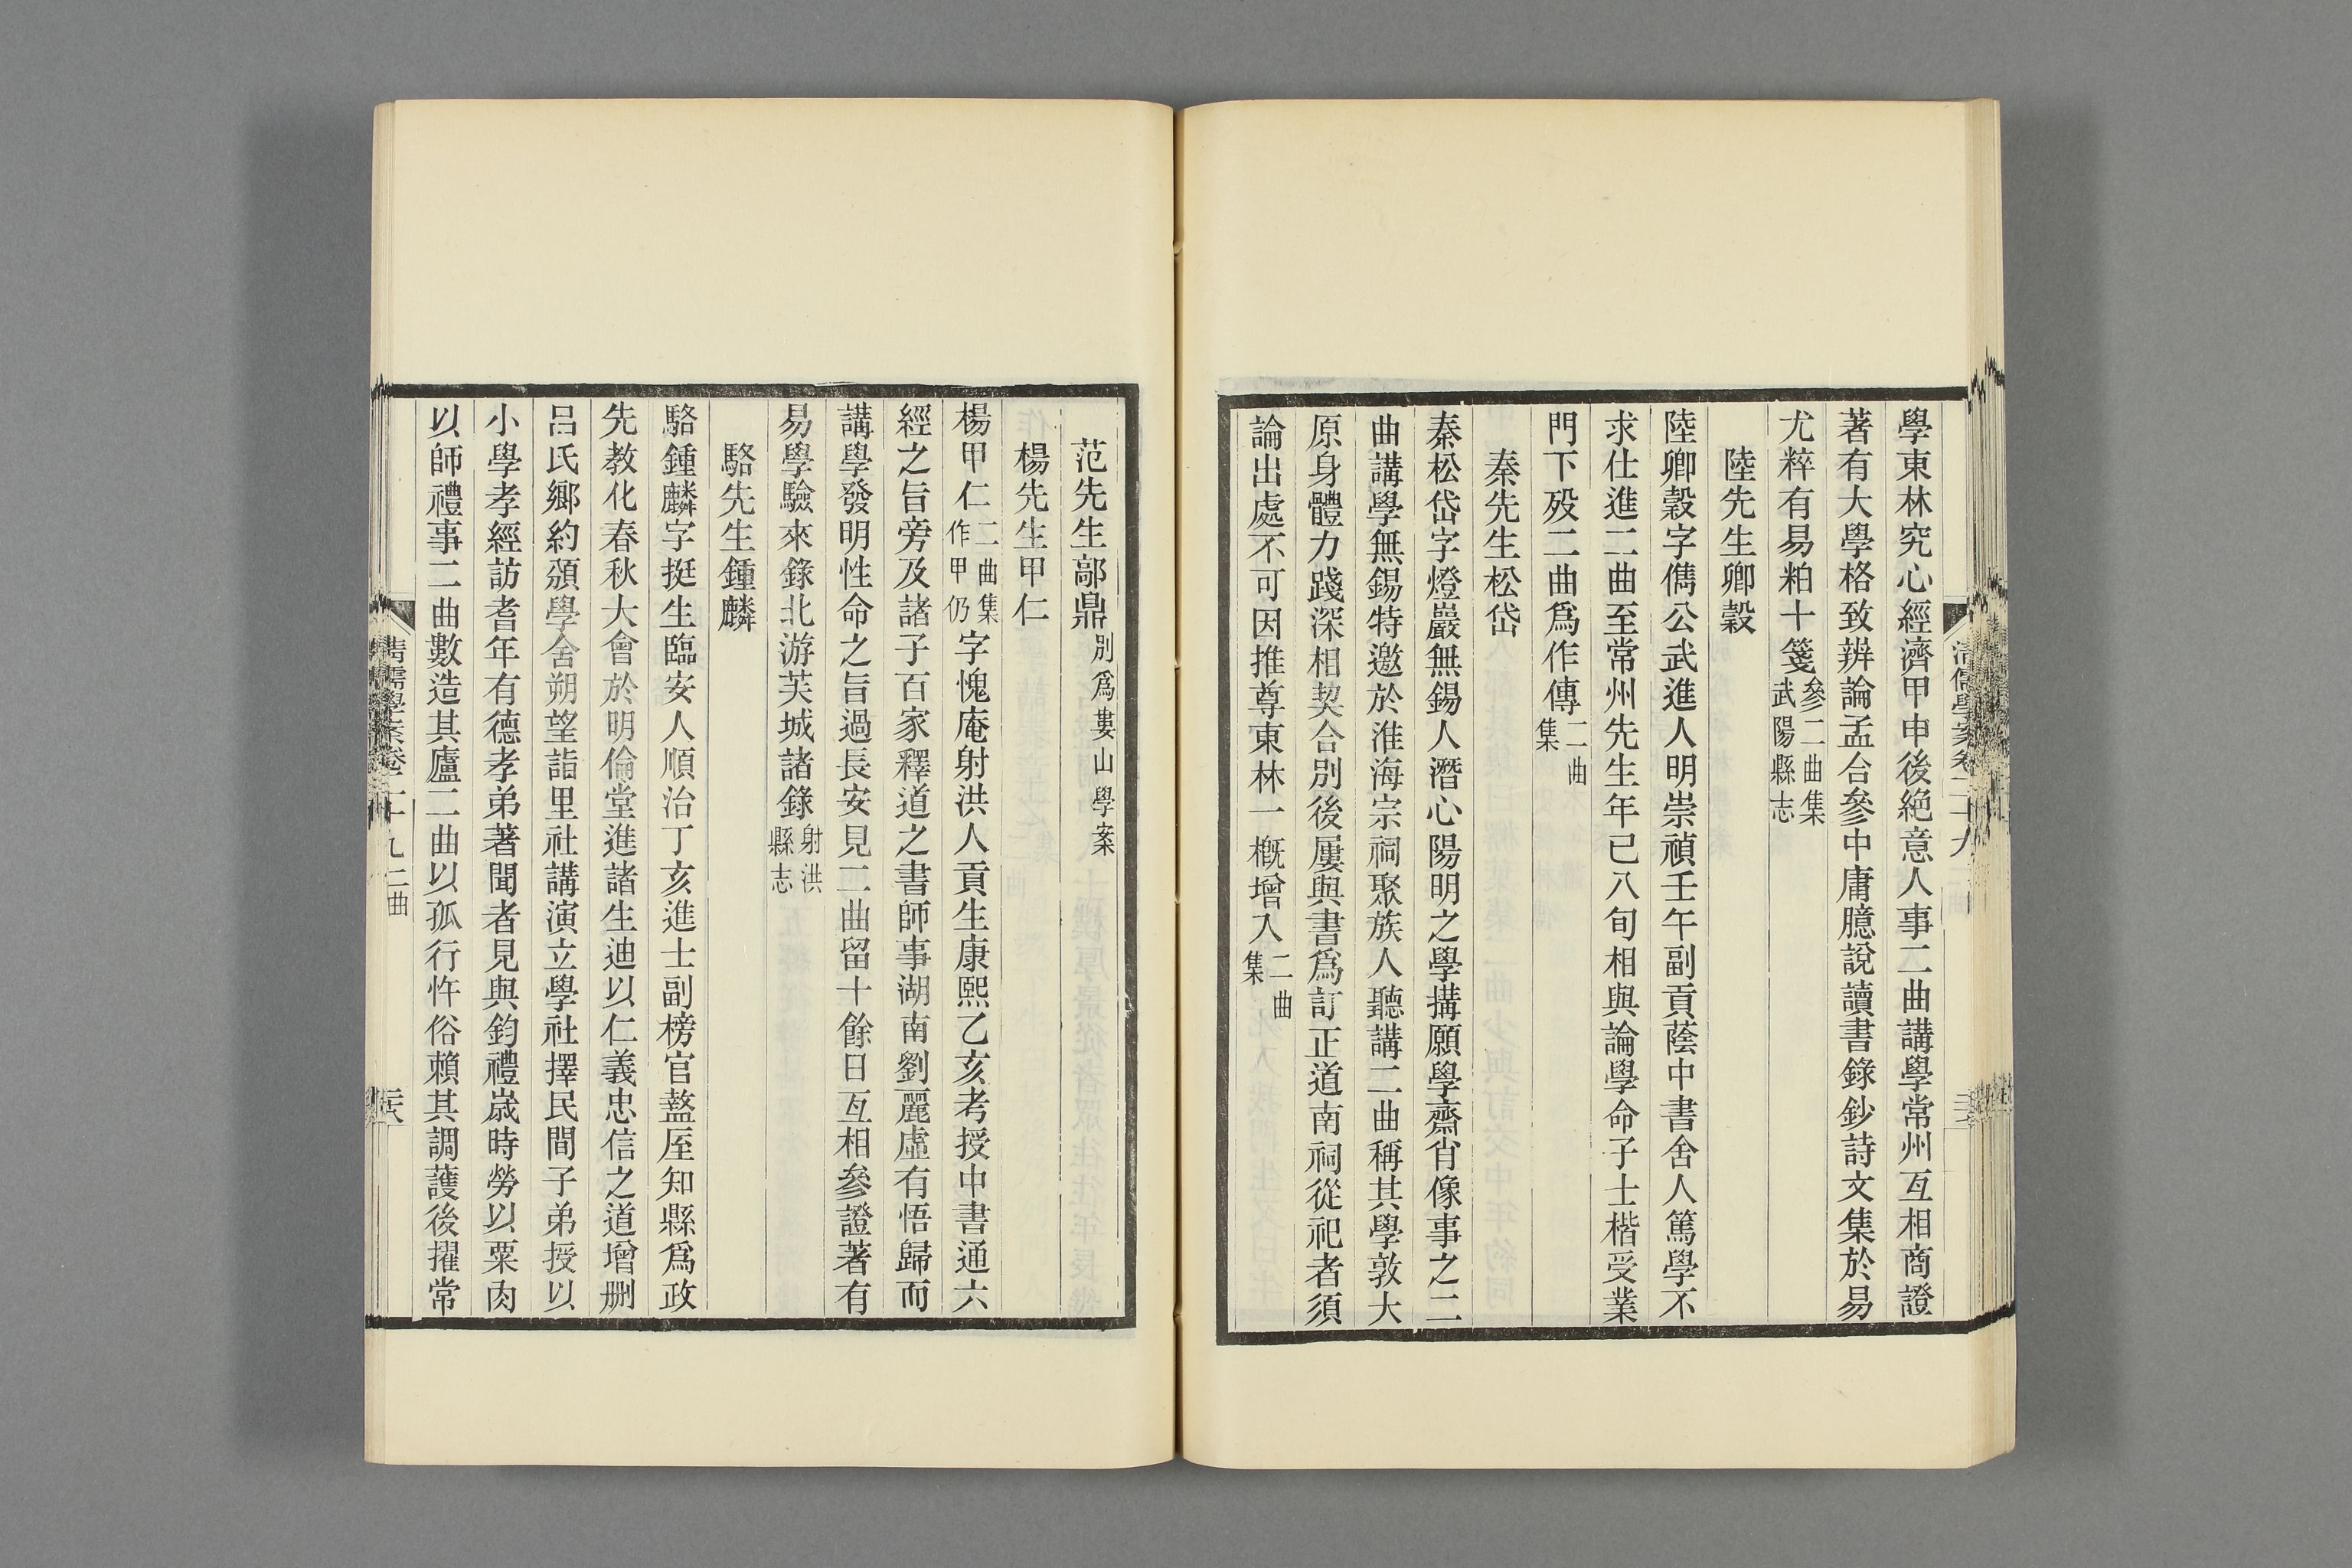 學東林究心經濟甲申後絕意人事二曲講學常州互相商證
著有大學格致辨論孟台參中庸臆說讀書錄鈔詩文集於易
尤粹有易粕十箋參二曲集武陽縣志
陸先生卿穀
陸卿穀字儁公武進人明崇禎壬午副貢蔭中書舍人篤學不
求仕進二曲至常州先生年已八旬相與論學命子士楷受業
門下歿二曲爲作傳二曲集
秦先生松岱
秦松岱字燈巖無錫人潛心陽明之學搆願學齋肖像事之二
曲講學無錫特邀於淮海宗祠聚族人聽講二曲稱其學敦大
原身體力踐深相契合別後屢與書爲訂正道南祠從祀者須
論出處不可因推尊東林一槪增入二曲集
范先生鄗鼎別爲婁山學案
楊先生甲仁
楊甲仁二曲集作甲仍字愧庵射洪人貢生康熙乙亥考授中書通六
經之旨旁及諸子百家釋道之書師事湖南劉麗虛有悟歸而
講學發明性命之旨過長安見二曲留十餘日互相參證著有
易學驗來錄北游芙城諸錄射洪縣志
駱先生鍾麟
駱鍾麟字挺生臨安人順治丁亥進士副榜官盩厔知縣爲政
先教化春秋大會於明倫堂進諸生迪以仁義忠信之道增删
呂氏鄉約頒學舍朔望詣里社講演立學社擇民間子弟授以
小學孝經訪耆年有德孝弟著聞者見與鈞禮歲時勞以粟肉
以師禮事二曲數造其廬二曲以孤行忤俗賴其調護後擢常
清儒學案卷二十九二曲